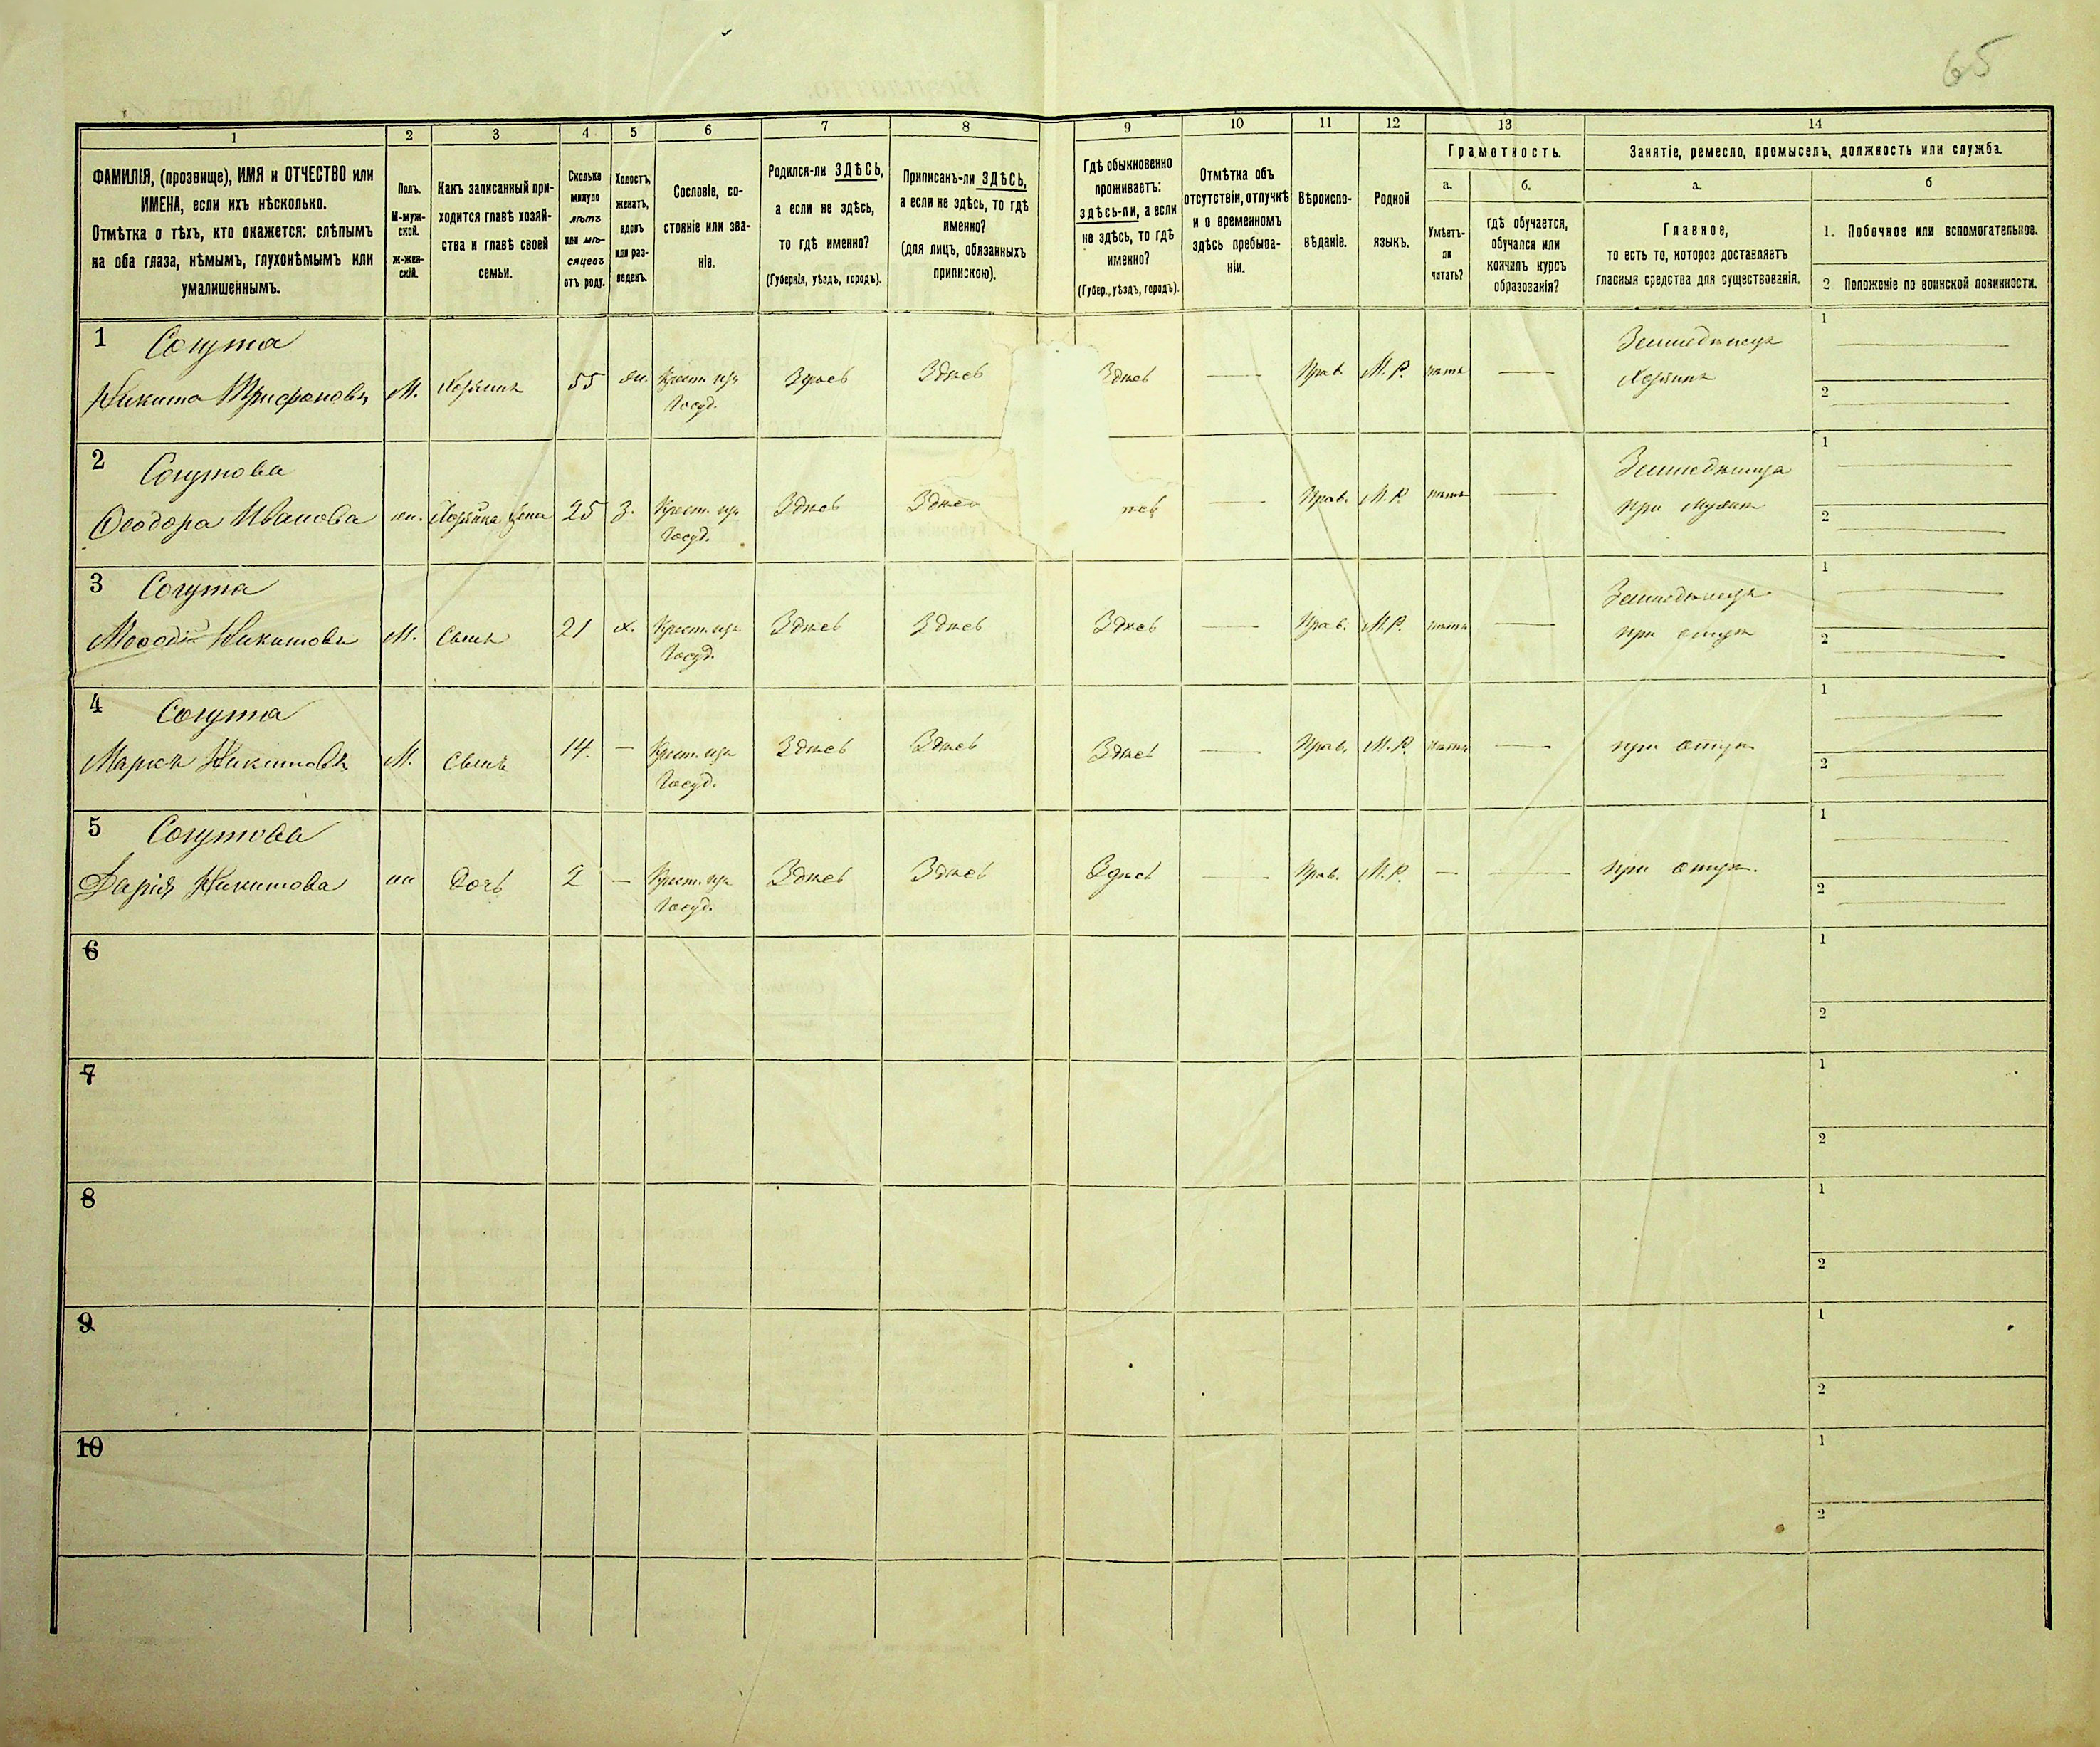 65
1 2 3 4 5 6 7 8 9 10 11 12 13 14
ФАМИЛІЯ, (прозвище), ИМЯ и ОТЧЕСТВО или
ИМЕНА, если ихъ нѣсколько.
Отмѣтка о тѣхъ, кто окажется: слѣпымъ
на оба глаза, нѣмымъ, глухонѣмымъ или
умалишеннымъ.
Полъ.
М-муж-
ской.
ж-жен-
скій.
Какъ записанный при-
ходится главѣ хозяй-
ства и главѣ своей
семьи.
Сколько
минуло
лѣтъ
или мѣ-
сяцевъ
отъ роду.
Холостъ,
женатъ,
вдовъ
или раз-
веденъ.
Сословіе, со-
стояніе или зва-
ніе.
Родился-ли ЗДѢСЬ,
а если не здѣсь,
то гдѣ именно?
(Губернія, уѣздъ, городъ).
Приписанъ-ли ЗДѢСЬ,
а если не здѣсь, то гдѣ
именно?
(для лицъ, обязанныхъ
припискою).
Гдѣ обыкновенно
проживаетъ:
здѣсь-ли, а если
не здѣсь, то гдѣ
именно?
(Губер., уѣздъ, городъ).
Отмѣтка объ
отсутствіи, отлучкѣ
и о временномъ
здѣсь пребыва-
ніи.
Вѣроиспо-
вѣданіе.
Родной
языкъ.
Грамотность.
а.
Умѣетъ-
ли
читать?
б.
гдѣ обучается,
обучался или
кончилъ курсъ
образованія?
Занятіе, ремесло, промыселъ, должность или служба.
а.
Главное,
то есть то, которое доставляетъ
главныя средства для существованія.
б
1. Побочное или вспомогательное.
2 Положеніе по воинской повинности.
1 Согута
Никита Трифоновъ М. Хозяинъ 55 жн. Крест. изъ Здѣсь Здѣсь Здѣсь — Прав. М. Р. нѣтъ —
Госуд.
Земледѣлецъ
Хозяинъ
1 —
2 —
2 Согутова
Ѳеодора Иванова жн. Хозяина жена 25 З. Крест. изъ Здѣсь Здѣсь — Прав. М. Р. нѣтъ —
Госуд.
при мужѣ
1 —
2 —
3 Согута
Меѳодій Никитовъ М. Сынъ 21 х. Крест. изъ Здѣсь Здѣсь Здѣсь — Прав. М. Р. нѣтъ —
Госуд.
Земледѣлецъ
при отцѣ
1 —
2 —
4 Согута
Маркъ Никитовъ М. Сынъ 14. — Крест. изъ Здѣсь Здѣсь Здѣсь — Прав. М. Р. нѣтъ — при отцѣ
Госуд.
1 —
2 —
5 Согутова
Дарія Никитова жн Дочь 2 — Крест. изъ Здѣсь Здѣсь Здѣсь — Прав. М. Р. — — при отцѣ.
Госуд.
1 —
2 —
6
1
2
7
1
2
8
1
2
9
1
2
10
1
2